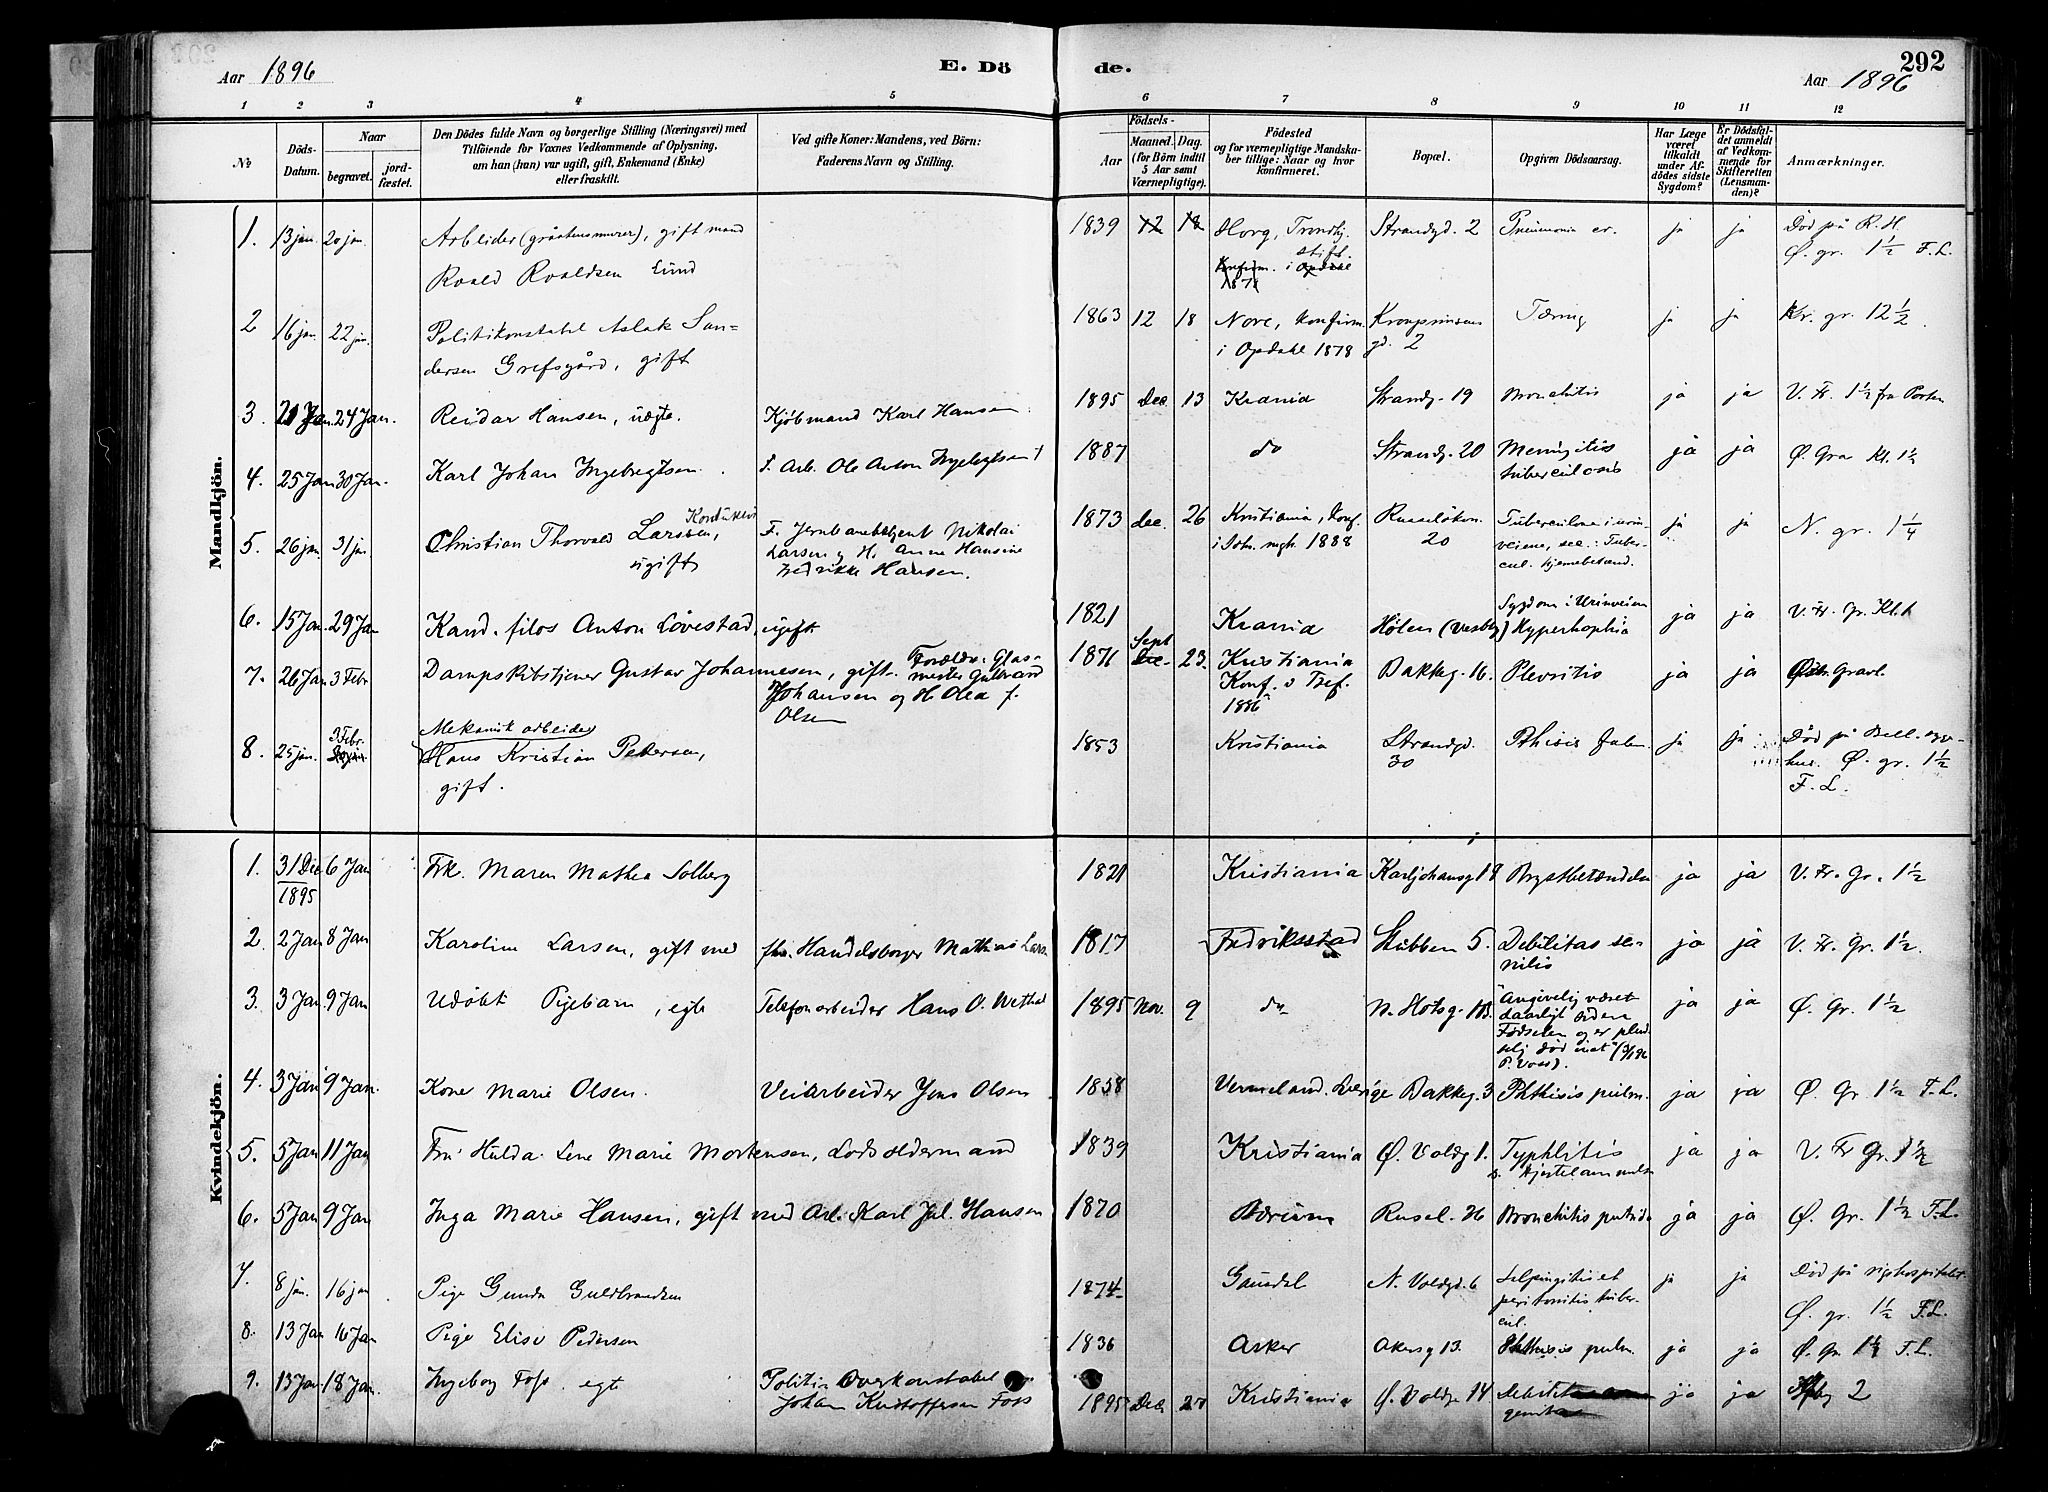 Aar 1896
E. Dö
de.
292
Aar 1896
1 2 3 4 5 6 7 8 9 10 11 12
No
Döds-Datum.
Naar
begravet.
jord-fæstet.
Den Dödes fulde Navn og borgerlige Stilling (Næringsvei) med
Tilföiende for Voxnes Vedkommende af Oplysning,
om han (hun) var ugift, gift, Enkemand (Enke)
eller fraskilt.
Ved gifte Koner: Mandens, ved Börn:
Faderens Navn og Stilling.
Födsels-
Aar
Maaned. Dag.
(for Börn indtil
5 Aar samt
Værnepligtige).
Födested
og for værnepligtige Mandska-
ber tillige: Naar og hvor
konfirmeret.
Bopæl.
Opgiven Dödsaarsag.
Har Læge
været
tilkaldt
under Af-
dödes sidste
Sygdom?
Er Dödsfal-
det anmeldt
af Vedkom-
mende for
Skifteretten
(Lensman-
den)?
Anmærkninger.
Mandkjön.
1. 13 jan. 20 jan. Arbeider (gråstensmurer), gift mand 1839 12 18 Horg, Trondhj. Strandgd. 2 Pneumonia cr. ja ja Död på R. H.
Roald Roaldsen Lund stift. Konfirm. i Opdahl 1878 Ø. gr. 1½ F.L.
2 16 jan. 22 jan. Politikonstabel Aslak San- 1863 12 18 Nore, konfirm. Kronprinsens Tæring ja ja Kr. gr. 12½
dersen Grefsgård, gift i Opdahl 1878 gd. 2
3. 21 Jan. 24 Jan. Reidar Hansen, uægte. Kjöbmand Karl Hansen 1895 Dec. 13 Krania Strandg. 19 Bronchitis ja ja V. Fr. 1½ fra Porten
4. 25 Jan 30 Jan. Karl Johan Ingebregtsen. F. Arb. Ole Anton Ingebregtsen 1887 do Strandg. 20 Meningitis ja ja Ø. Gra Kl. 1½
tuberculosis
5. 26 jan. 31 jan. Christian Thorvald Larssen, F. Jernbanebetjent Nikolai 1873 dec. 26 Kristiania, Konf. Russelökv. ja ja N. gr. 1¼
ugift Larsen og H. Anne Hansine 1888 20 veiene, sec.: Tuber-
Fredrikke Hansen. cul. hjernebetænd.
6. 15 Jan. 29 Jan Kand. filos Anton Lövestad, ugift 1821 Krania Hölen (Vestby) Sygdom i Urinveiene ja ja V. Fr. Gr. Kl. 1
Hyperthophia
7. 26 Jan 3 Febr Dampskibstjener Gustav Johannesen, gift. Forældre: Glas- 1871 Sept Dec. 23. Kristiania Bakkeg. 16. Plevritis ja ja Østr. Gravl.
mester Gulbrand Konf. v Tref.
Johansen og H. Olea f. 1886
Olsen
Mekanisk arbeider
8. 25 jan. 3 Febr. Hans Kristian Petersen, 1853 Kristiania Strandgd. Phthisis pulm. ja ja Död på
gift. 30 hus. Ø. gr. 1½
F. L.
Kvindekjön.
1. 31 Dec 1895 6 Jan Frk. Maren Mathea Solberg 1821 Kristiania Karljohansg 18 Brystbetændelse ja ja V. Fr. Gr. 1½
2. 2 Jan 8 Jan Karoline Larsen, gift med fhv. Handelsborger Mathias Lars. 1817 Fredriksstad Stubben 5. Debilitas se- ja ja V. Fr. Gr. 1½.
nilis
3. 3 Jan. 9 Jan Udöbt Pigebarn, egte Telefonarbeider Hans O. 1895 Nov. 9 do ja ja Ø. Gr. 1½
"Angivelig været
daarligt siden
Födselen og er plud-
selig död inat"
P. Voss.
4. 3 Jan 9 Jan. Kone Marie Olsen. Veiarbeider Jens Olsen 1858 Vermeland. Sverige Bakkeg. 3 Phthisis pulm. ja ja Ø. Gr. 1½ F.L.
5. 5 Jan 11 Jan Fru Hulda Lene Marie Mortensen, Lodsoldermand 1839 Kristiania Ø. Voldg 1. Typhlitis ja ja V. Fr Gr. 1½
6. 5 Jan 9 Jan Inga Marie Hansen, gift med Arb. Karl Jul. Hansen 1870 Bærum Rusel. 26 Bronchitis putrida ja ja Ø. Gr. 1½ F.L.
7. 8 jan. 16 jan Pige Gunda Guldbrandsen 1874 Gausdal N. Voldgd. 6 Salpingitis et ja ja Död på rigshospitalet.
peritonitis tuber- Ø. gr. 1½ F.L.
cul.
8. 13 Jan 16 Jan Pige Elise Pedersen 1836 Asker Akersg 13. Phthisis pulm. ja ja Ø. Gr. 1½ F.L.
9. 13 Jan 18 Jan. Ingeborg Foss. egt Politi Overkonstabel 1895 Dec 27 Kristiania Ø. Voldg. 14 ja ja 2
Johan Kristoffersen Foss